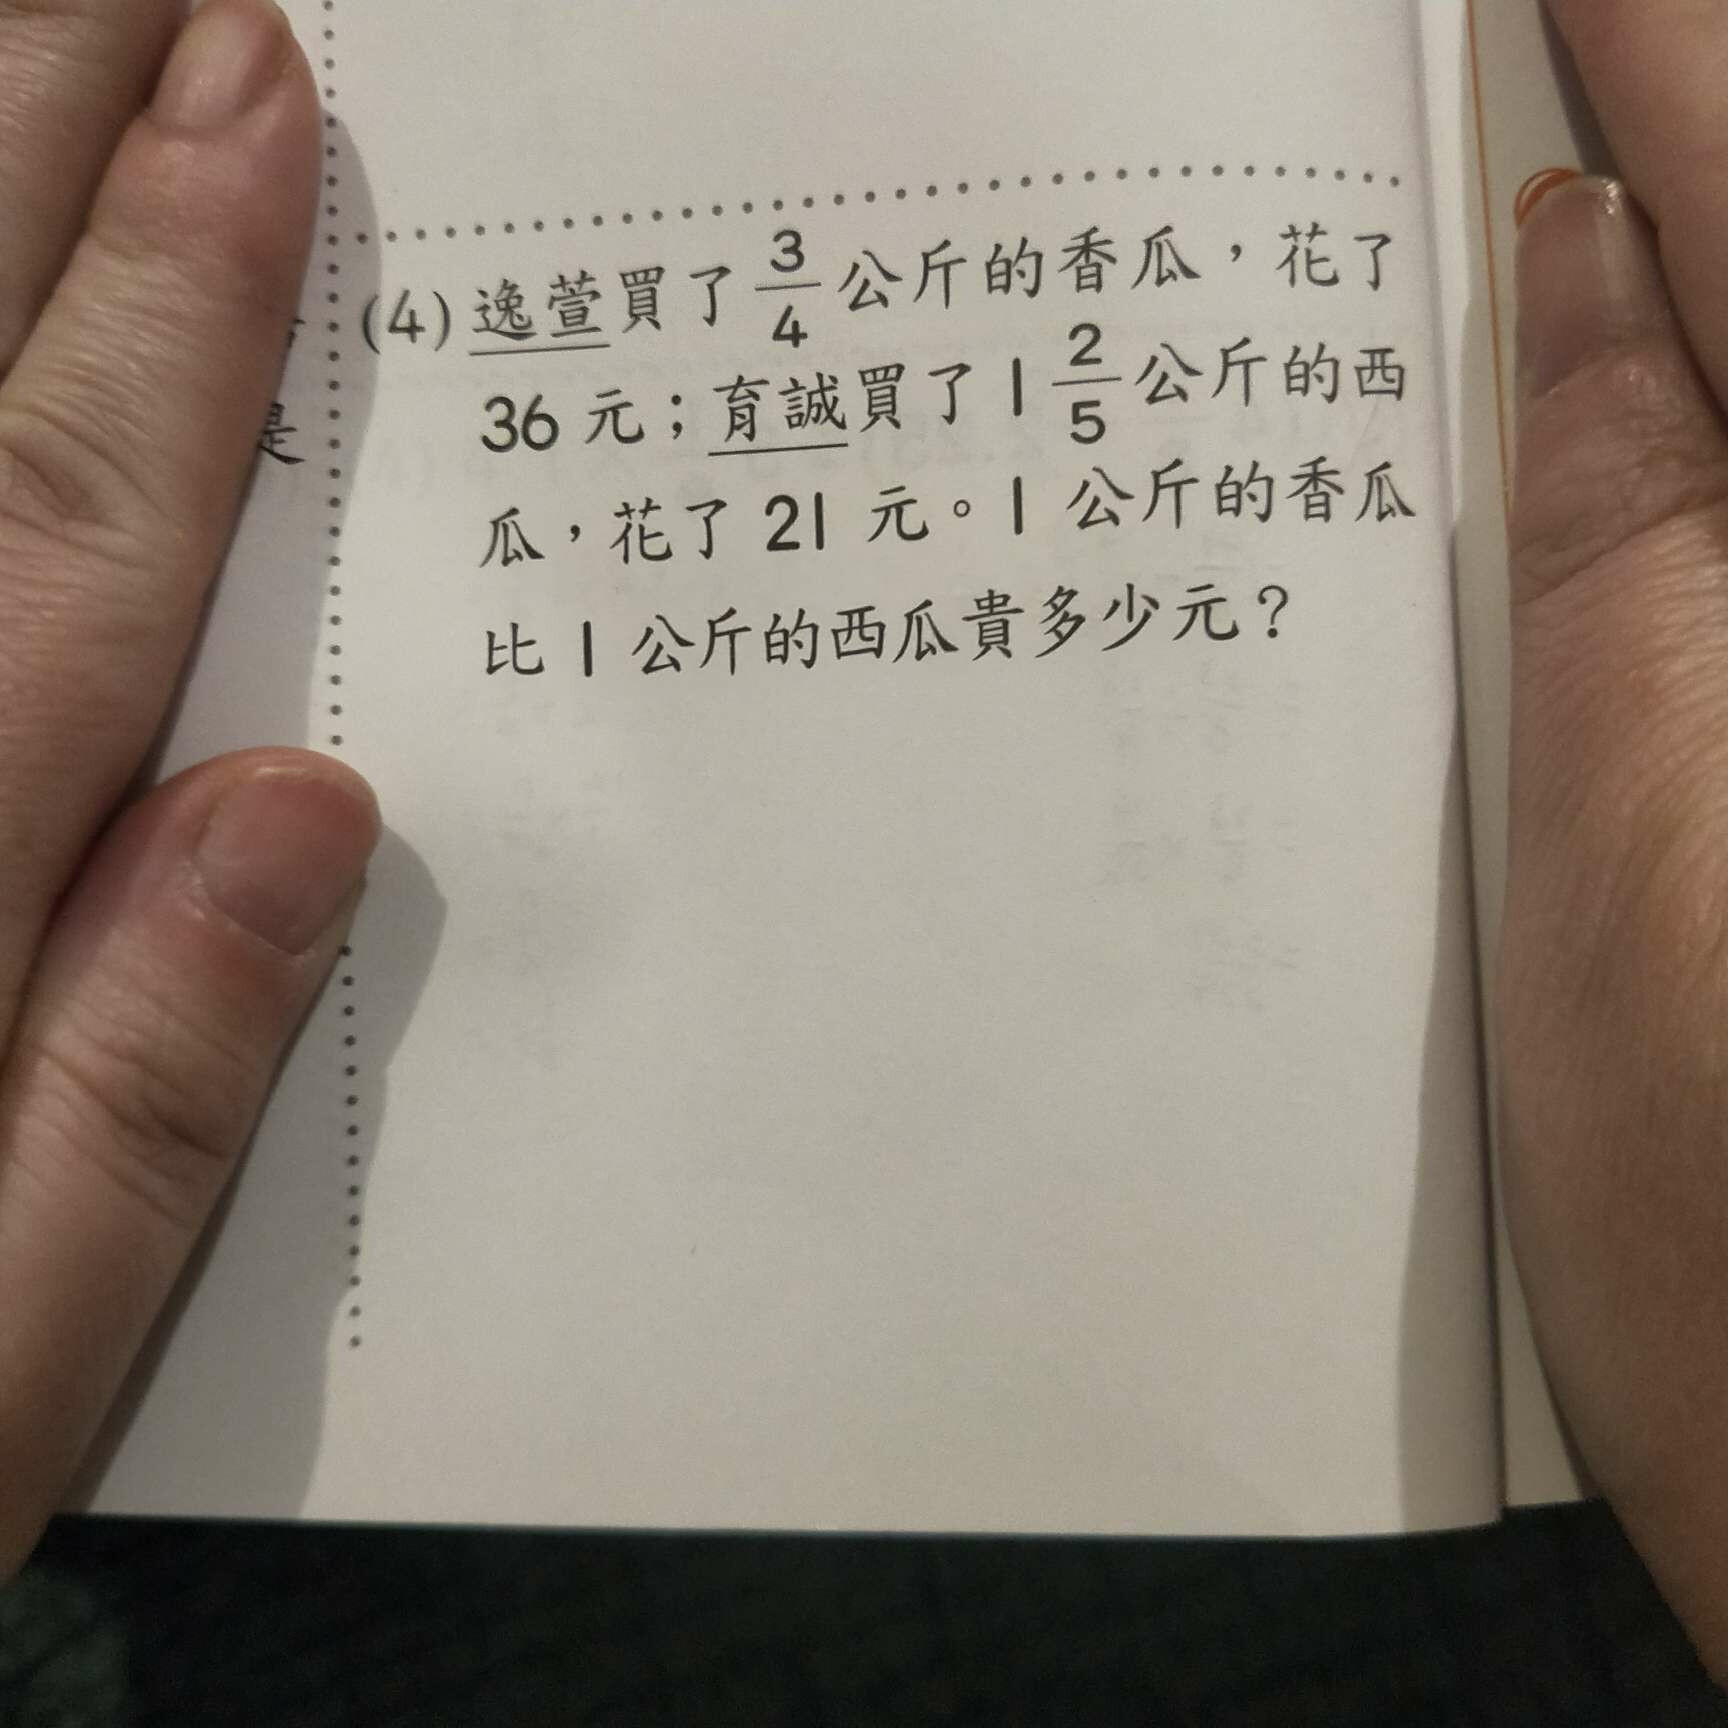 (4) 逸萱買了 3/4 公斤的香瓜，花了
36 元；育誠買了 1 2/5 公斤的西
瓜，花了 21 元。1 公斤的香瓜
比 1 公斤的西瓜貴多少元？
是